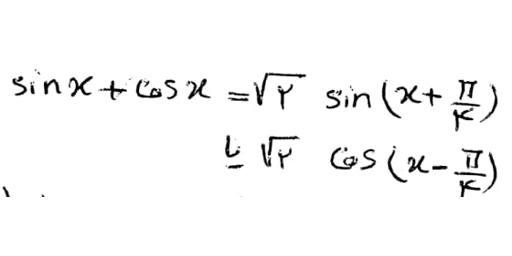 sinx + cosx = √۲ sin (x + π/۴)
یا √۲ cos (x - π/۴)